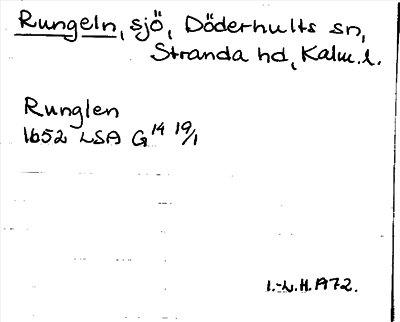 Rungeln, sjö, Döderhults sn,
Stranda hd, Kalm. l.
Runglen
1652 LSA G¹⁴ 19/1
I.-L.H. 1972.